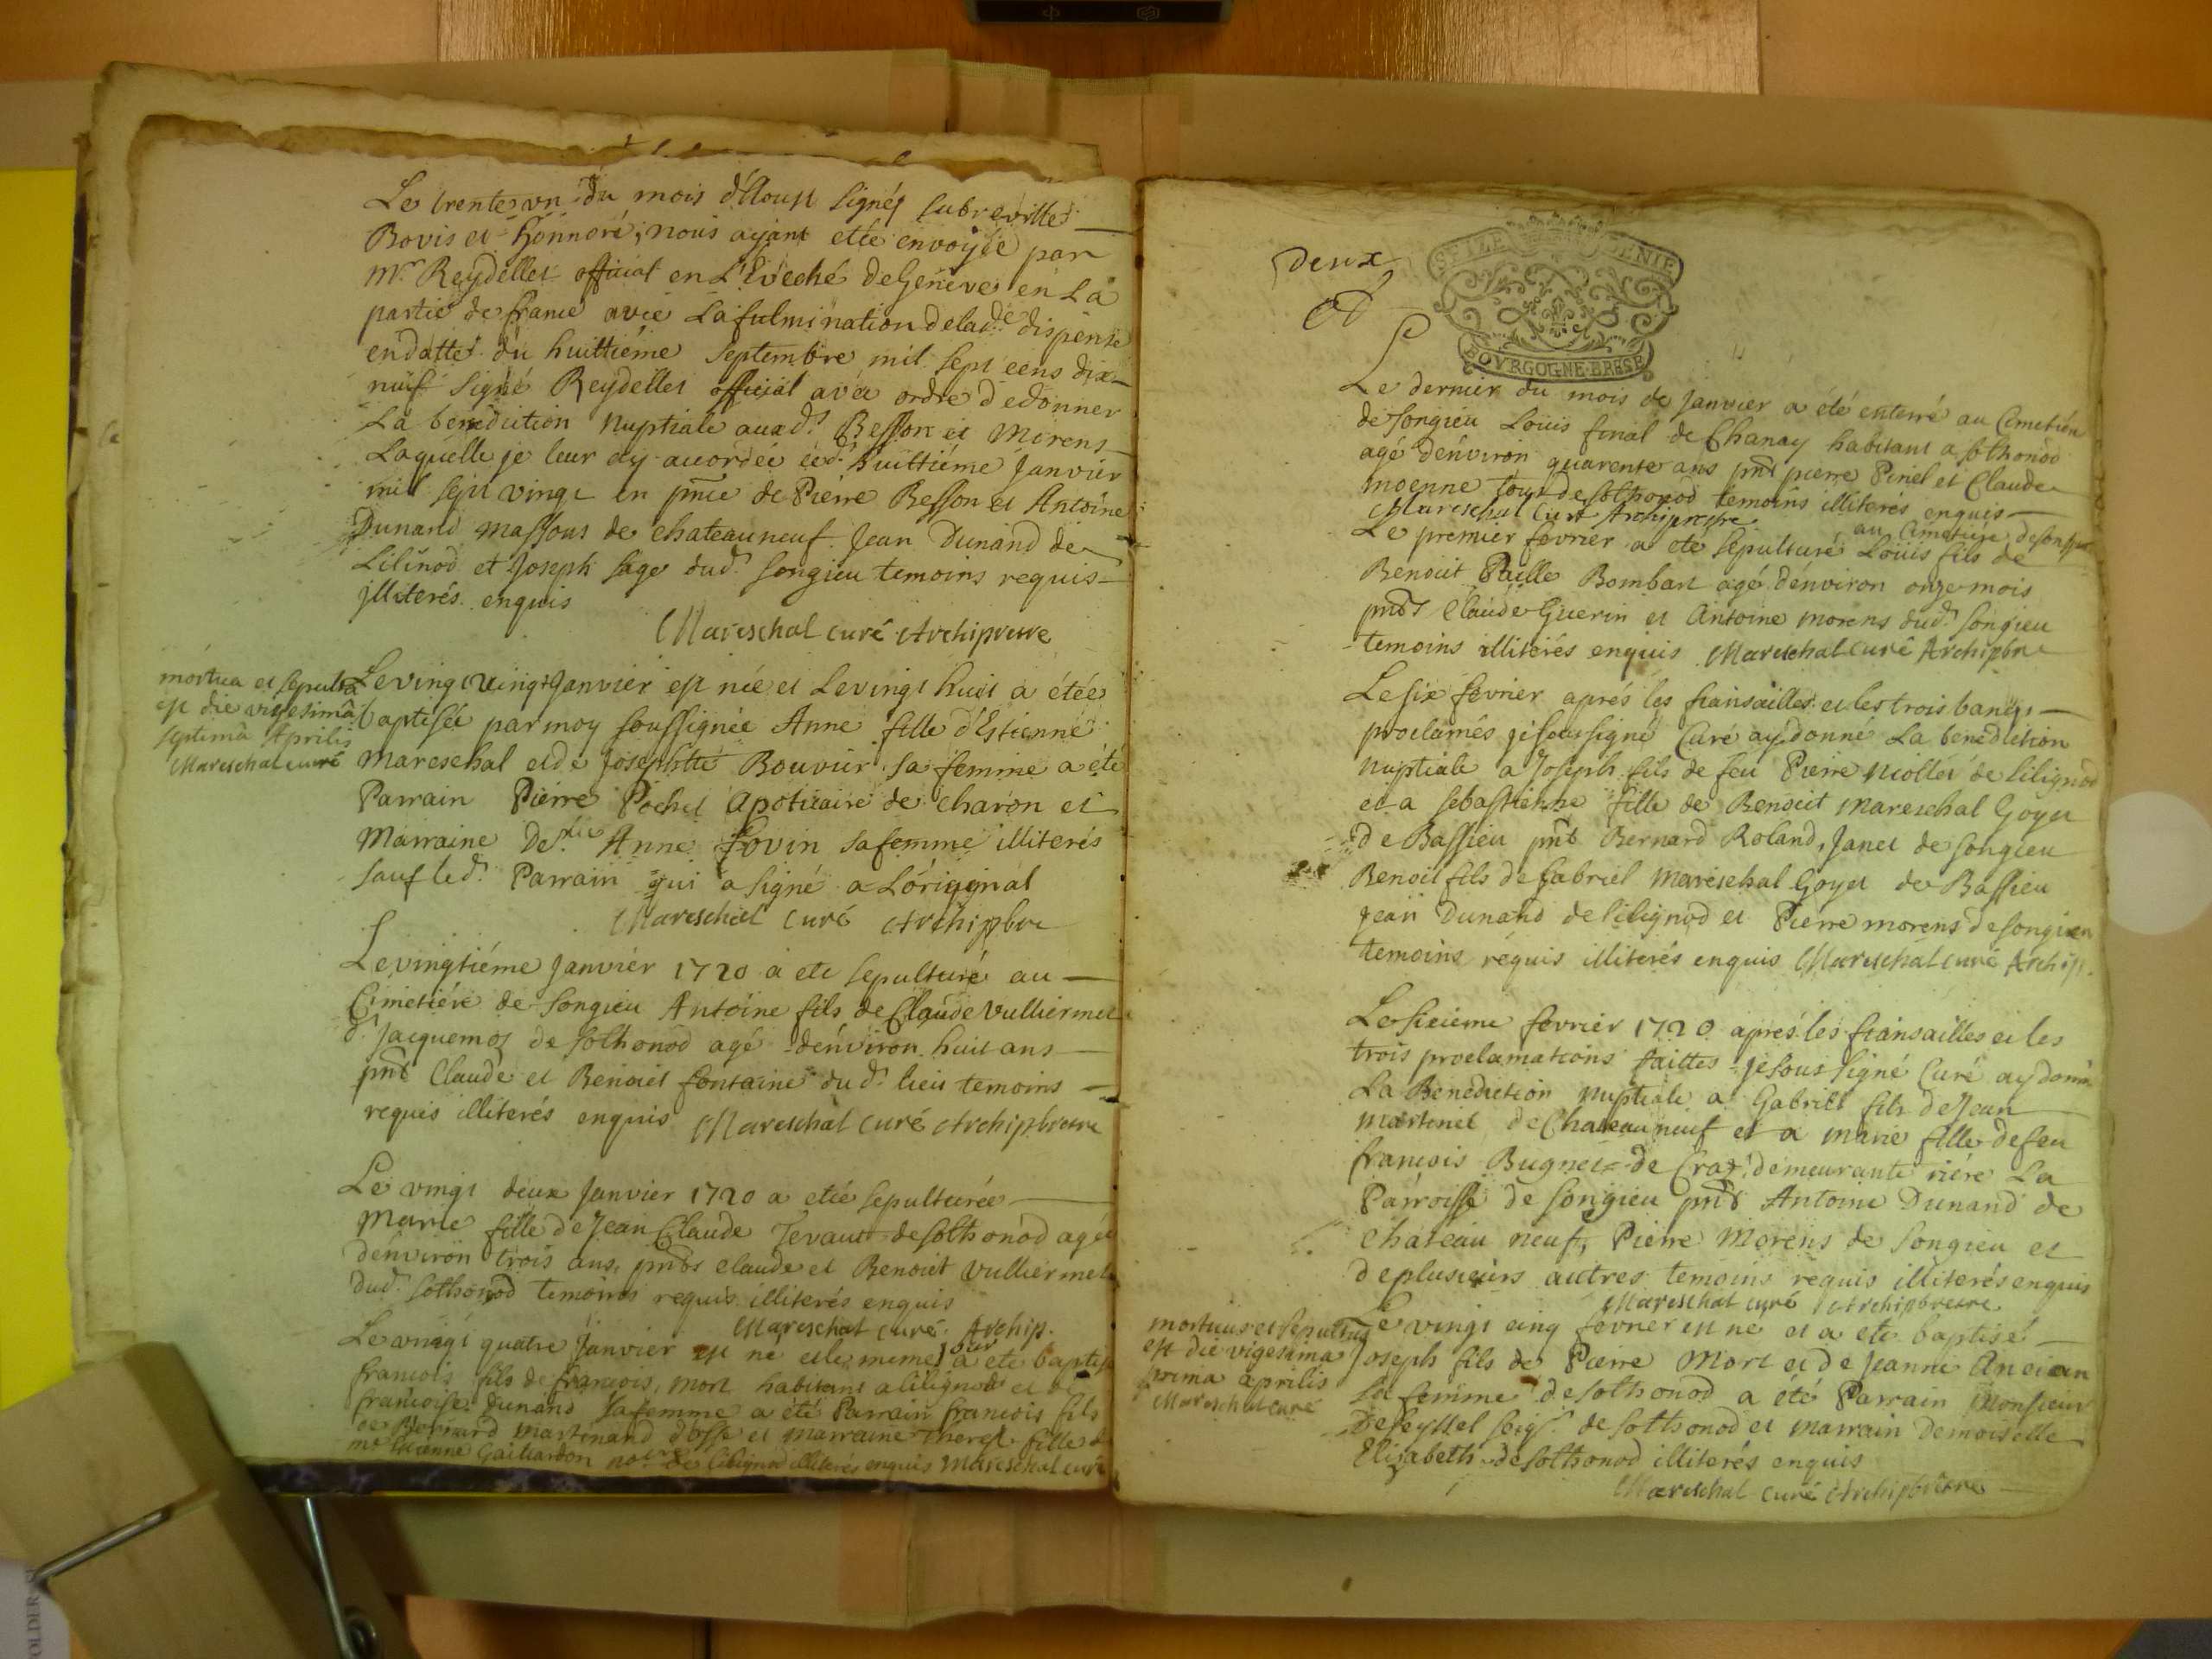 Le trente un du mois d'Aoust signés subreville
Bovis et Honnoré, nous ayant etée envoyée par
Mr. Reydellet official en L'Eveché de Geneve en La
partie de france avec La fulmination de lad.e dispense
en datte du huittiéme Septembre mil sept cens dix
neuf signé Reydellet official avec ordre de donner
La benediction nuptiale auxd.s Besson et Morens
Laquelle je leur ay accordée ced. huittiéme Janvier
mil sept vingt en pnce de Pierre Besson et Antoine
Dunand massons de chateauneuf Jean Dunand de
Lilinod et Joseph sage dud. songieu temoins requis
jlliterés enquis
Mareschal curé Archipretre
mortua et sepulta
est die vigesimâ
septimâ Aprilis
Mareschal curé
Le vingt Janvier est née et Le vingt huit a étée
baptisée par moy soussignée Anne fille d'Estienne
mareschal et de Josephtte Bouvier sa femme a été
Parrain Pierre Pochet Apoticaire de charon et
Marraine De.lle Anne fovin sa femme illiterés
sauf led. Parrain qui a signé a L'origginal
Mareschal curé Archipbre
Le vingtiéme Janvier 1720 a ete sepulturé au
Cimetiére de songieu Antoine fils de Claude vulliermet
d. Jacquemos de sothonod agé d'énviron huit ans
pnts Claude et Benoiet fontaine du d. lieu temoins
requis illiterés enquis Mareschal curé Archipbretre
Le vingt deux Janvier 1720 a eteé sepulturée
Marie fille de Jean Claude Tevaut de sothonod agée
d'énviron trois ans, pnts claude et Benoiet vulliermet
dud. sothonod temoins requis illiterés enquis
Mareschal curé Archip.
Le vingt quatre Janvier est né et le meme jour a eté baptisé
francois fils de francois, mort habitant a lilignod et de
francoise Dunand sa femme a été Parrain francois fils
de Bernard martinand d'osse et marraine Therese fille de
me Estienne Gaillardon no.re de lilignod illiterés enquis Mareschal curé
deux
SEIZE DENIE
BOVRGOGNE·BRESSE
Le dernier du mois de Janvier a été enterré au Cimetiére
de songieu Loüis final de Chanay habitant a sothonod
agé d'énviron quarente ans pnts pierre Pinel et Claude
moenne tous de sothonod temoins illiterés enquis
Mareschal Curé Archiprestre
au Cimetiére de songieu
Le premier fevrier a eté sepulturé Loüis fils de
Benoit Paille Bomban agé d'énviron onze mois
pnts Claude Guerin et Antoine morens dud. songieu
temoins illiterés enquis Mareschal curé Archipbre
Le six fevrier aprés les fiansailles et les trois bancs
proclamés je soussigné Curé ay donné La benediction
nuptiale a Joseph fils de feu Pierre mollet de lilignod
et a sebastienne fille de Benoit mareschal Goyet
de Bassieu pnts Bernard Roland, Janet de songieu
Benoit fils de Gabriel mareschal Goyet de Bassieu
Jean Dunand de lilignod et Pierre morens de songieu
temoins requis illiterés enquis Mareschal curé Archip.
Le sixieme fevrier 1720 aprés les fiansailles et les
trois proclamations faittes je sous signé Curé ay donné
La Benediction nuptiale a Gabriel fils de Jean
martinet de Chateauneuf et a marie fille de feu
francois Bugnet de Craz demeurante riére La
Parroisse de songieu pnts Antoine Dunand de
chateau neuf, Pierre Morens de songieu et
de plusieurs autres temoins requis illiterés enquis
Mareschal curé Archipbretre
mortuus et sepultus
est die vigesima
prima aprilis
Mareschal curé
Le vingt cinq fevrier est né et a eté baptisé
Joseph fils de Pierre Mort et de Jeanne Ancian
sa femme de sothonod a été Parrain Monsieur
De seyssel seigr. de sothonod et marrain Demoiselle
Elizabeth de sothonod illiterés enquis
Mareschal curé Archipbretre